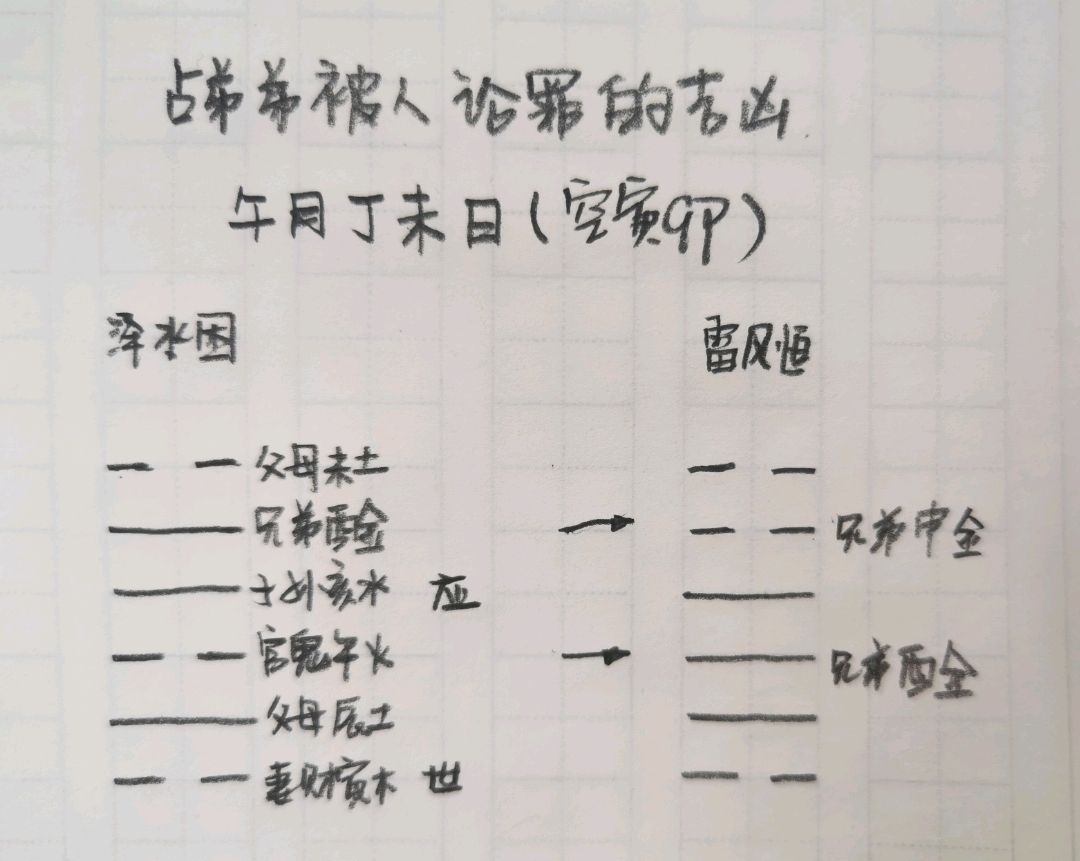 占弟弟被人论罪的吉凶
午月丁未日(空寅卯)
泽水困 雷风恒
父母未土
兄弟酉金 兄弟申金
子孙亥水 应
官鬼午火 兄弟酉金
父母辰土
妻财寅木 世